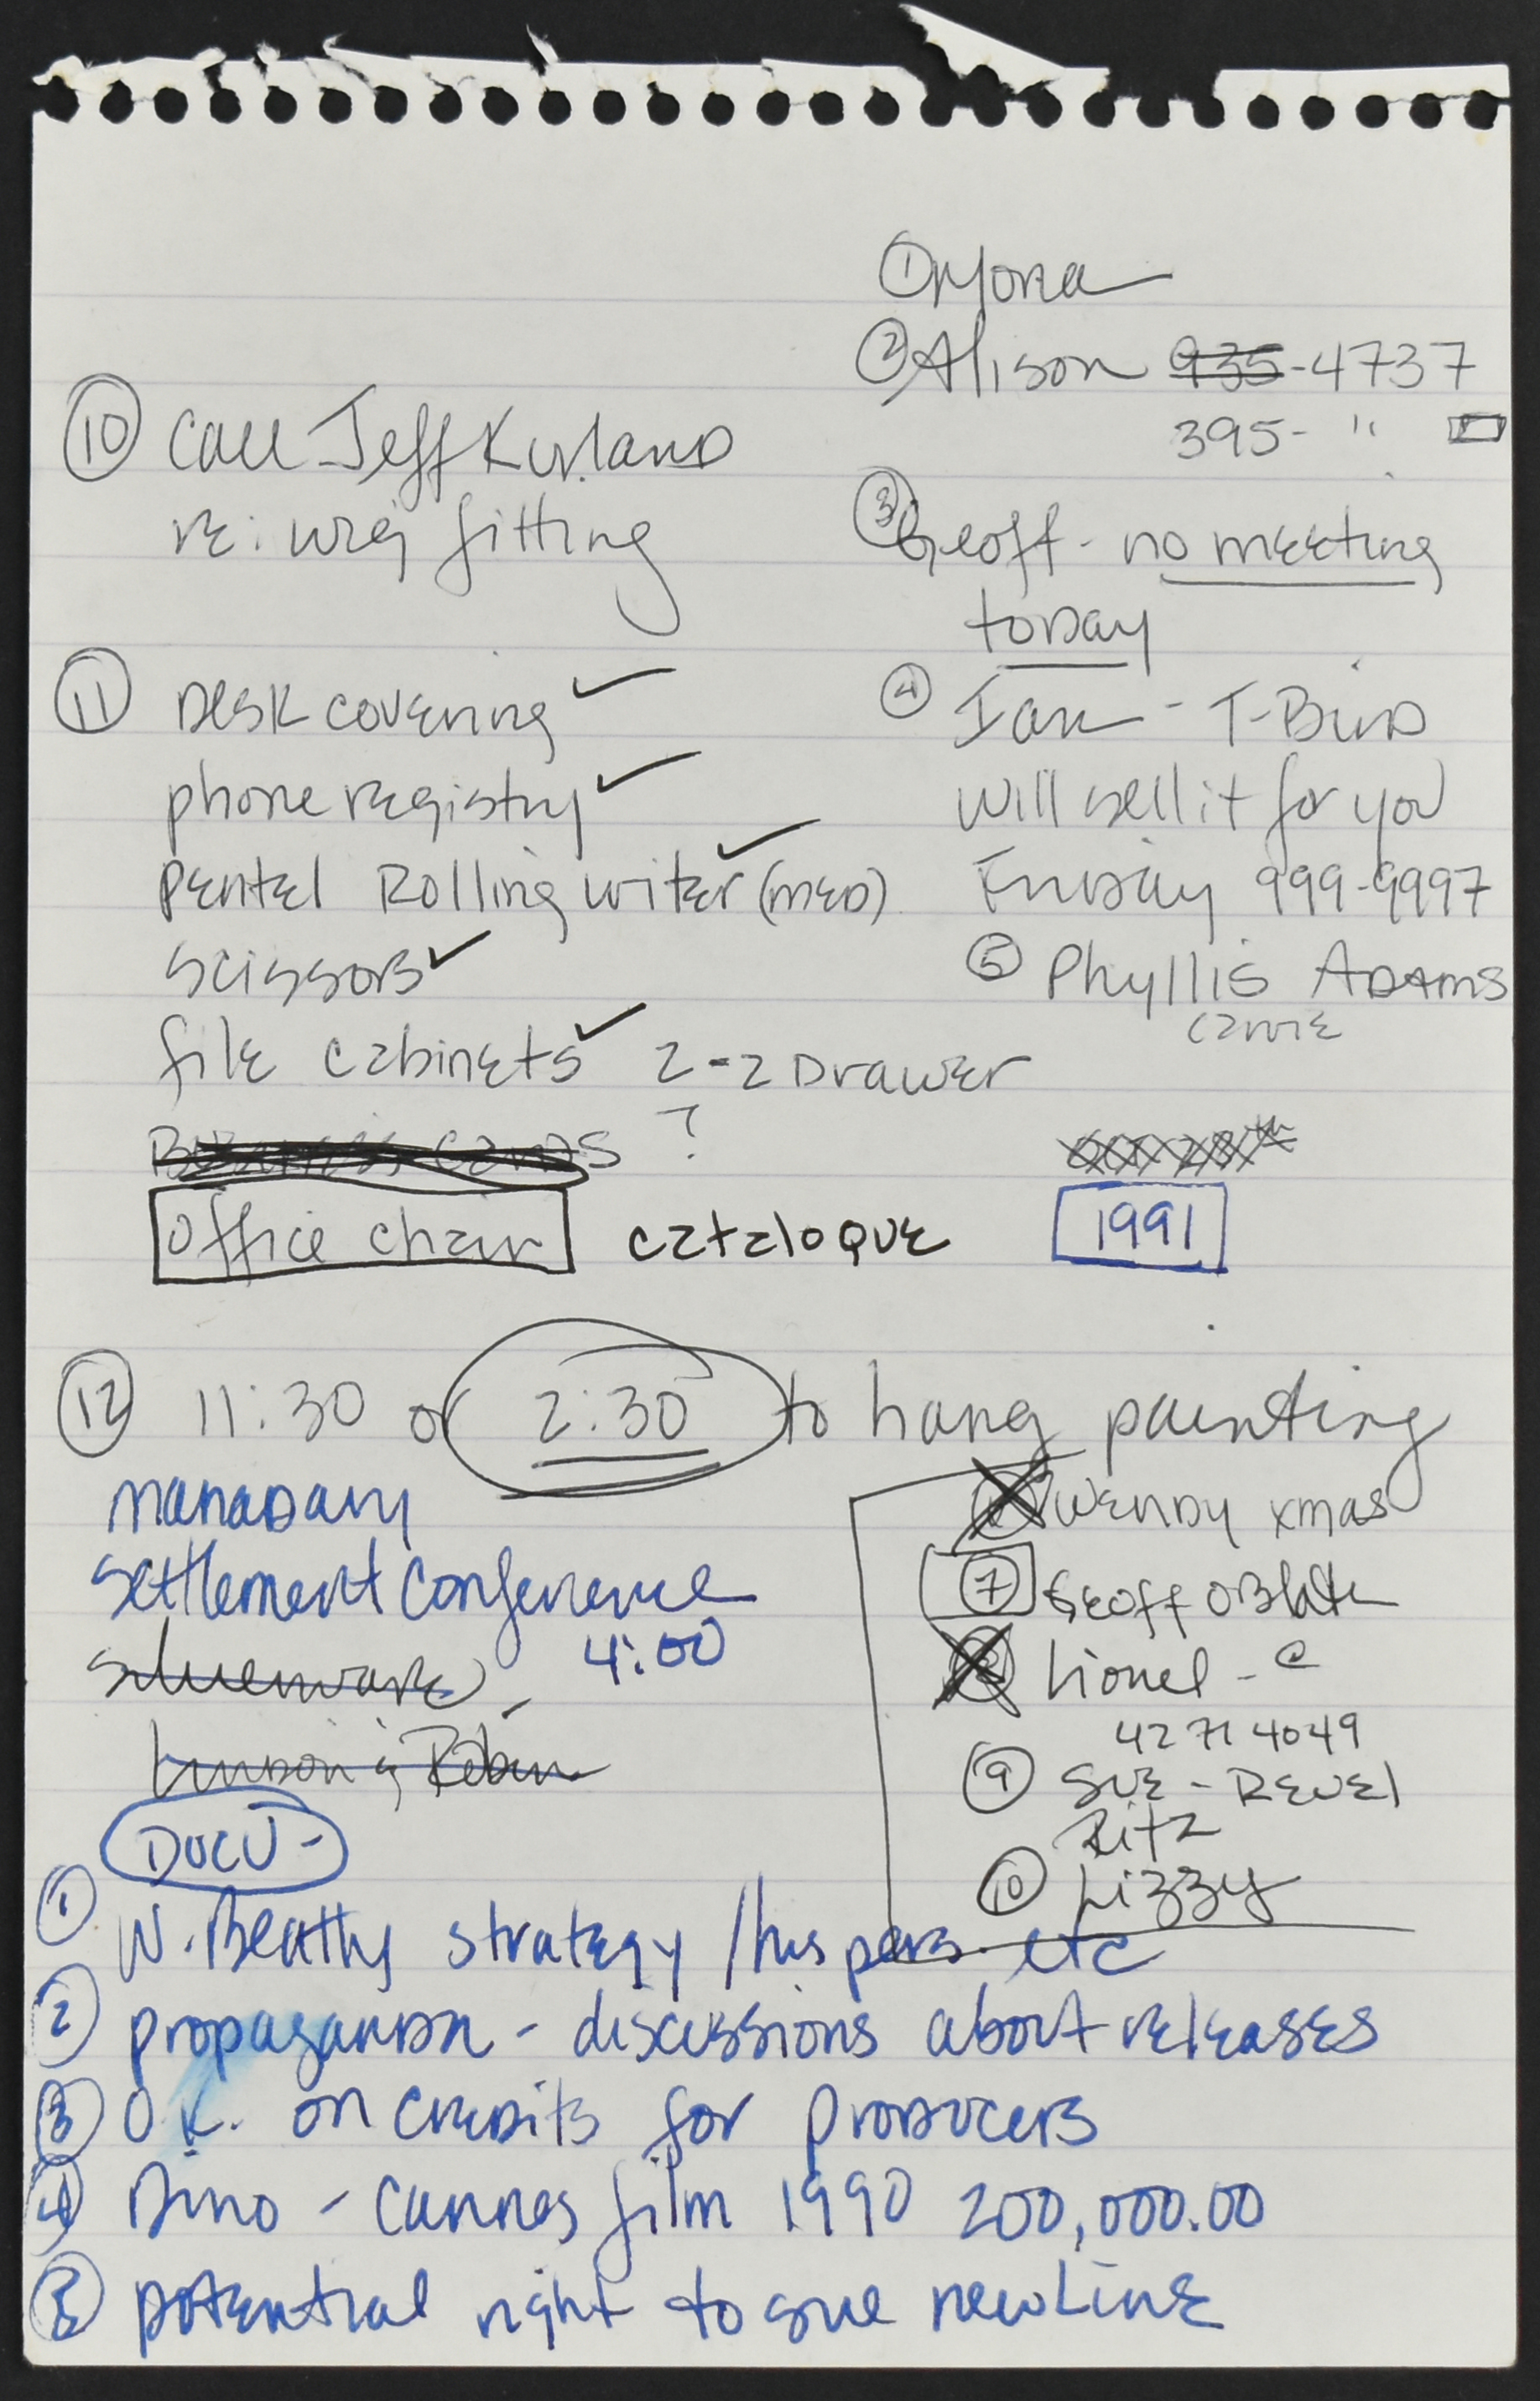 ① Mona
② Alison 935-4737
395- "
⑩ Call Jeff Kurland
re: wig fitting
③ Geoff - no meeting
today
⑪ Desk covering ✓
phone registry ✓
Pentel Rolling writer (med) ✓
scissors ✓
file cabinets ✓ 2-2 Drawer
Business cards ?
office chair catalogue
④ Ian - T-Bird
will sell it for you
Friday 999-9997
⑤ Phyllis Adams
1991
⑫ 11:30 or 2:30 to hang painting
settlement conference
4:00
Wendy xmas
⑦ Geoff
Lionel -
42714049
⑨ Sue - Revel
Ritz
⑩ Lizzy
DOCU-
① W. Beatty strategy / etc
② propaganda - discussions about releases
③ O.K. on credits for producers
④ Dino - Cannes film 1990 200,000.00
⑤ potential right to sue newLine